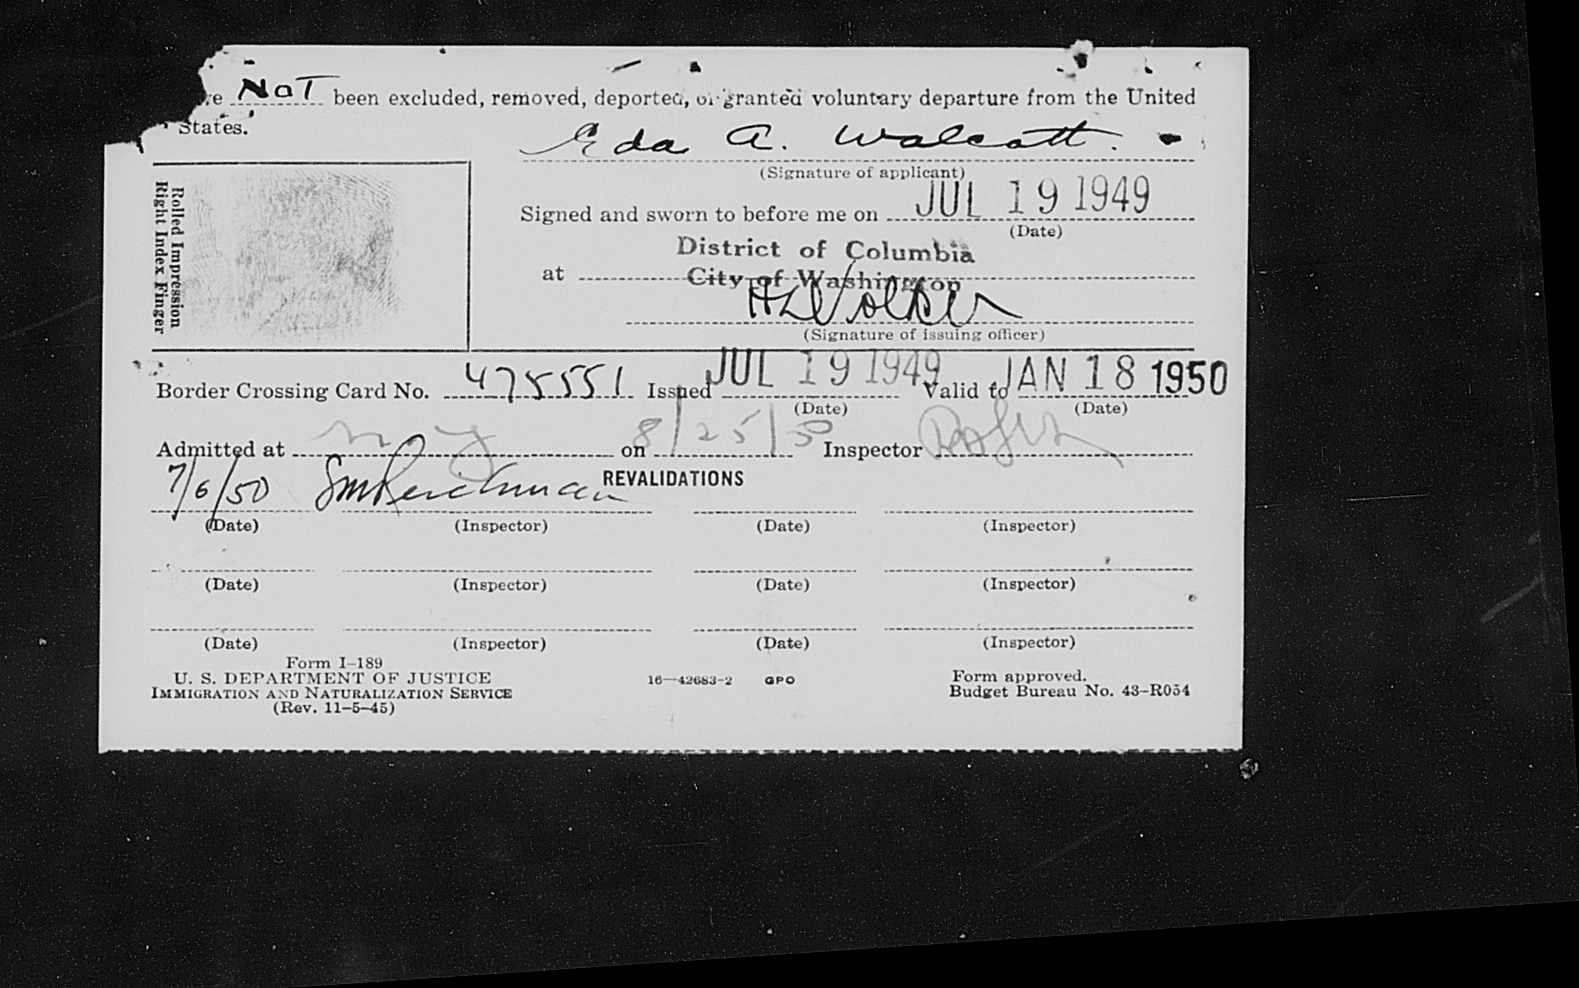 NOT been excluded, removed, deported, or granted voluntary departure from the United
States.
Eda A. Walcott.
(Signature of applicant)
Rolled Impression
Right Index Finger
Signed and sworn to before me on JUL 19 1949
(Date)
District of Columbia
at City of Washington
(Signature of issuing officer)
Border Crossing Card No. 475551 Issued JUL 19 1949 Valid to JAN 18 1950
(Date) (Date)
Admitted at on 8/25/50 Inspector
7/6/50 REVALIDATIONS
(Date) (Inspector) (Date) (Inspector)
(Date) (Inspector) (Date) (Inspector)
(Date) (Inspector) (Date) (Inspector)
Form I-189
U. S. DEPARTMENT OF JUSTICE
IMMIGRATION AND NATURALIZATION SERVICE
(Rev. 11-5-45)
16—42683-2 GPO
Form approved.
Budget Bureau No. 43-R054